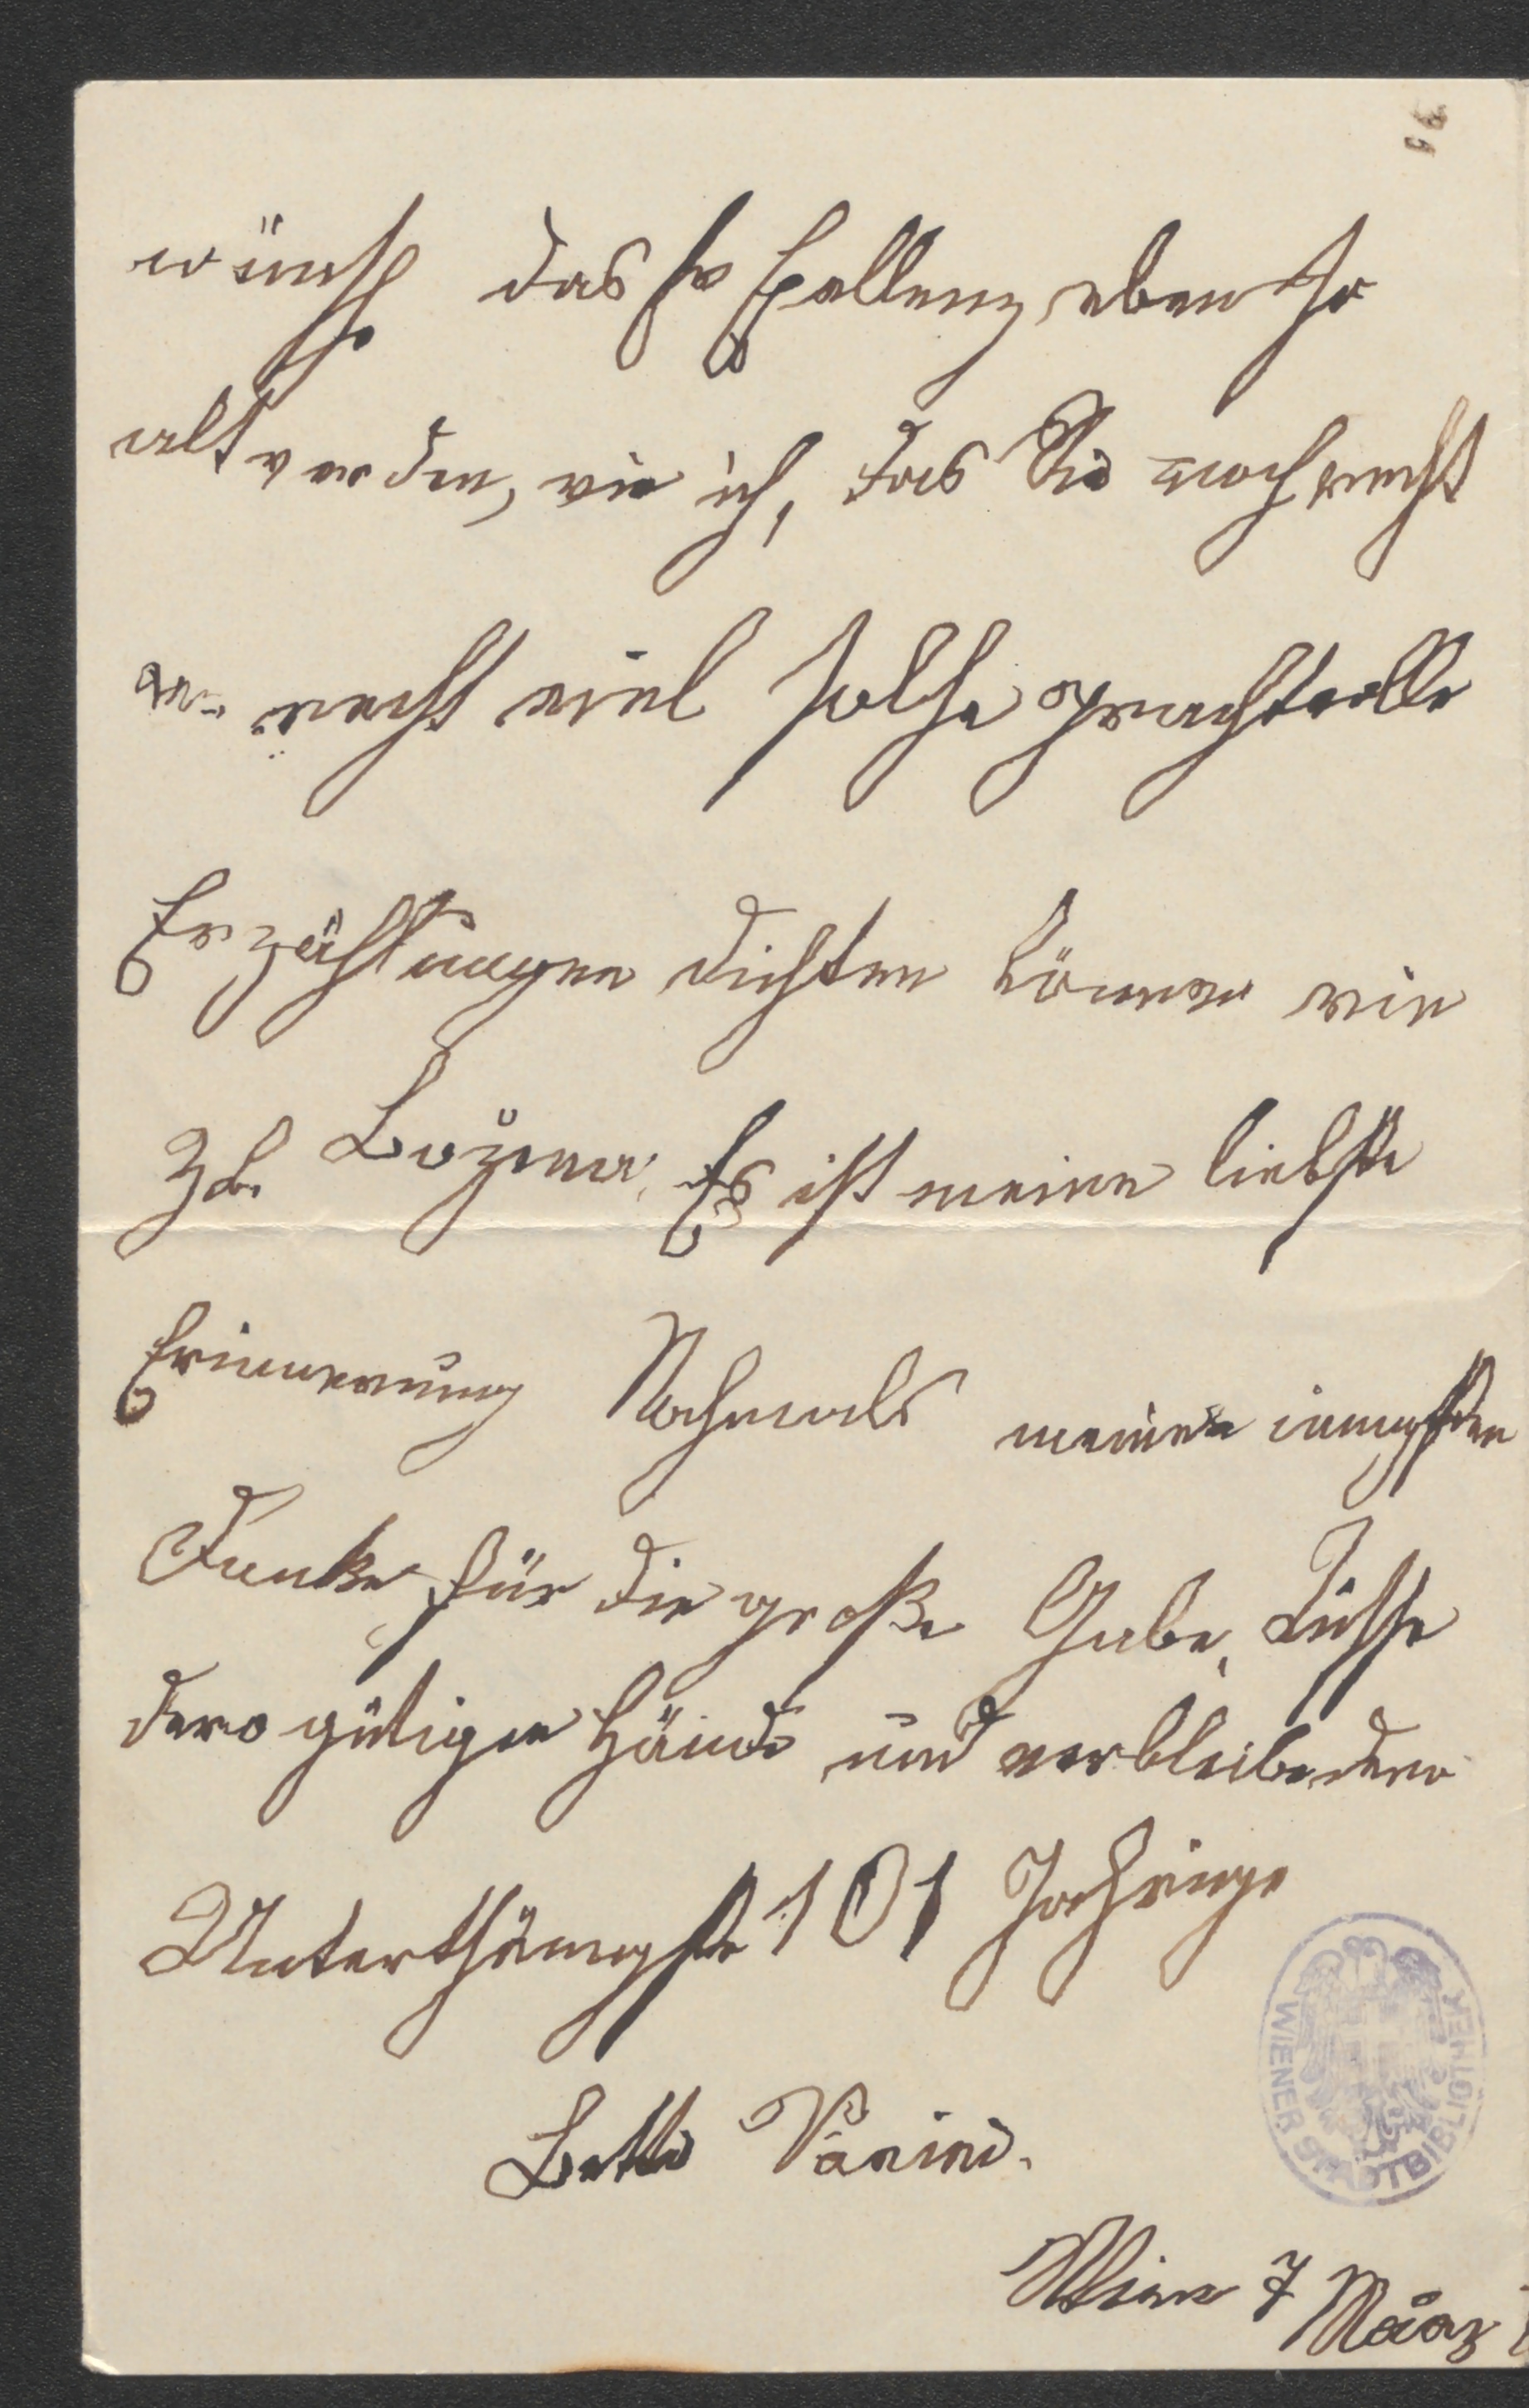 wünsche das Ex Exellenz eben so
alt werden, wie ich, das Sie noch recht
recht viel solche prachtvolle
Erzählungen dichten können wie
Zb. Božena. Es ist meine liebste
Erinnerung Nochmals meinen innigsten
Danke für die große Gabe, küsse
dero gütigen Hände und verbleibe dero
Unterthänigste 101 Jahrige
Betti Vanini.
Wien 7 März
WIENER STADTBIBLIOTHEK